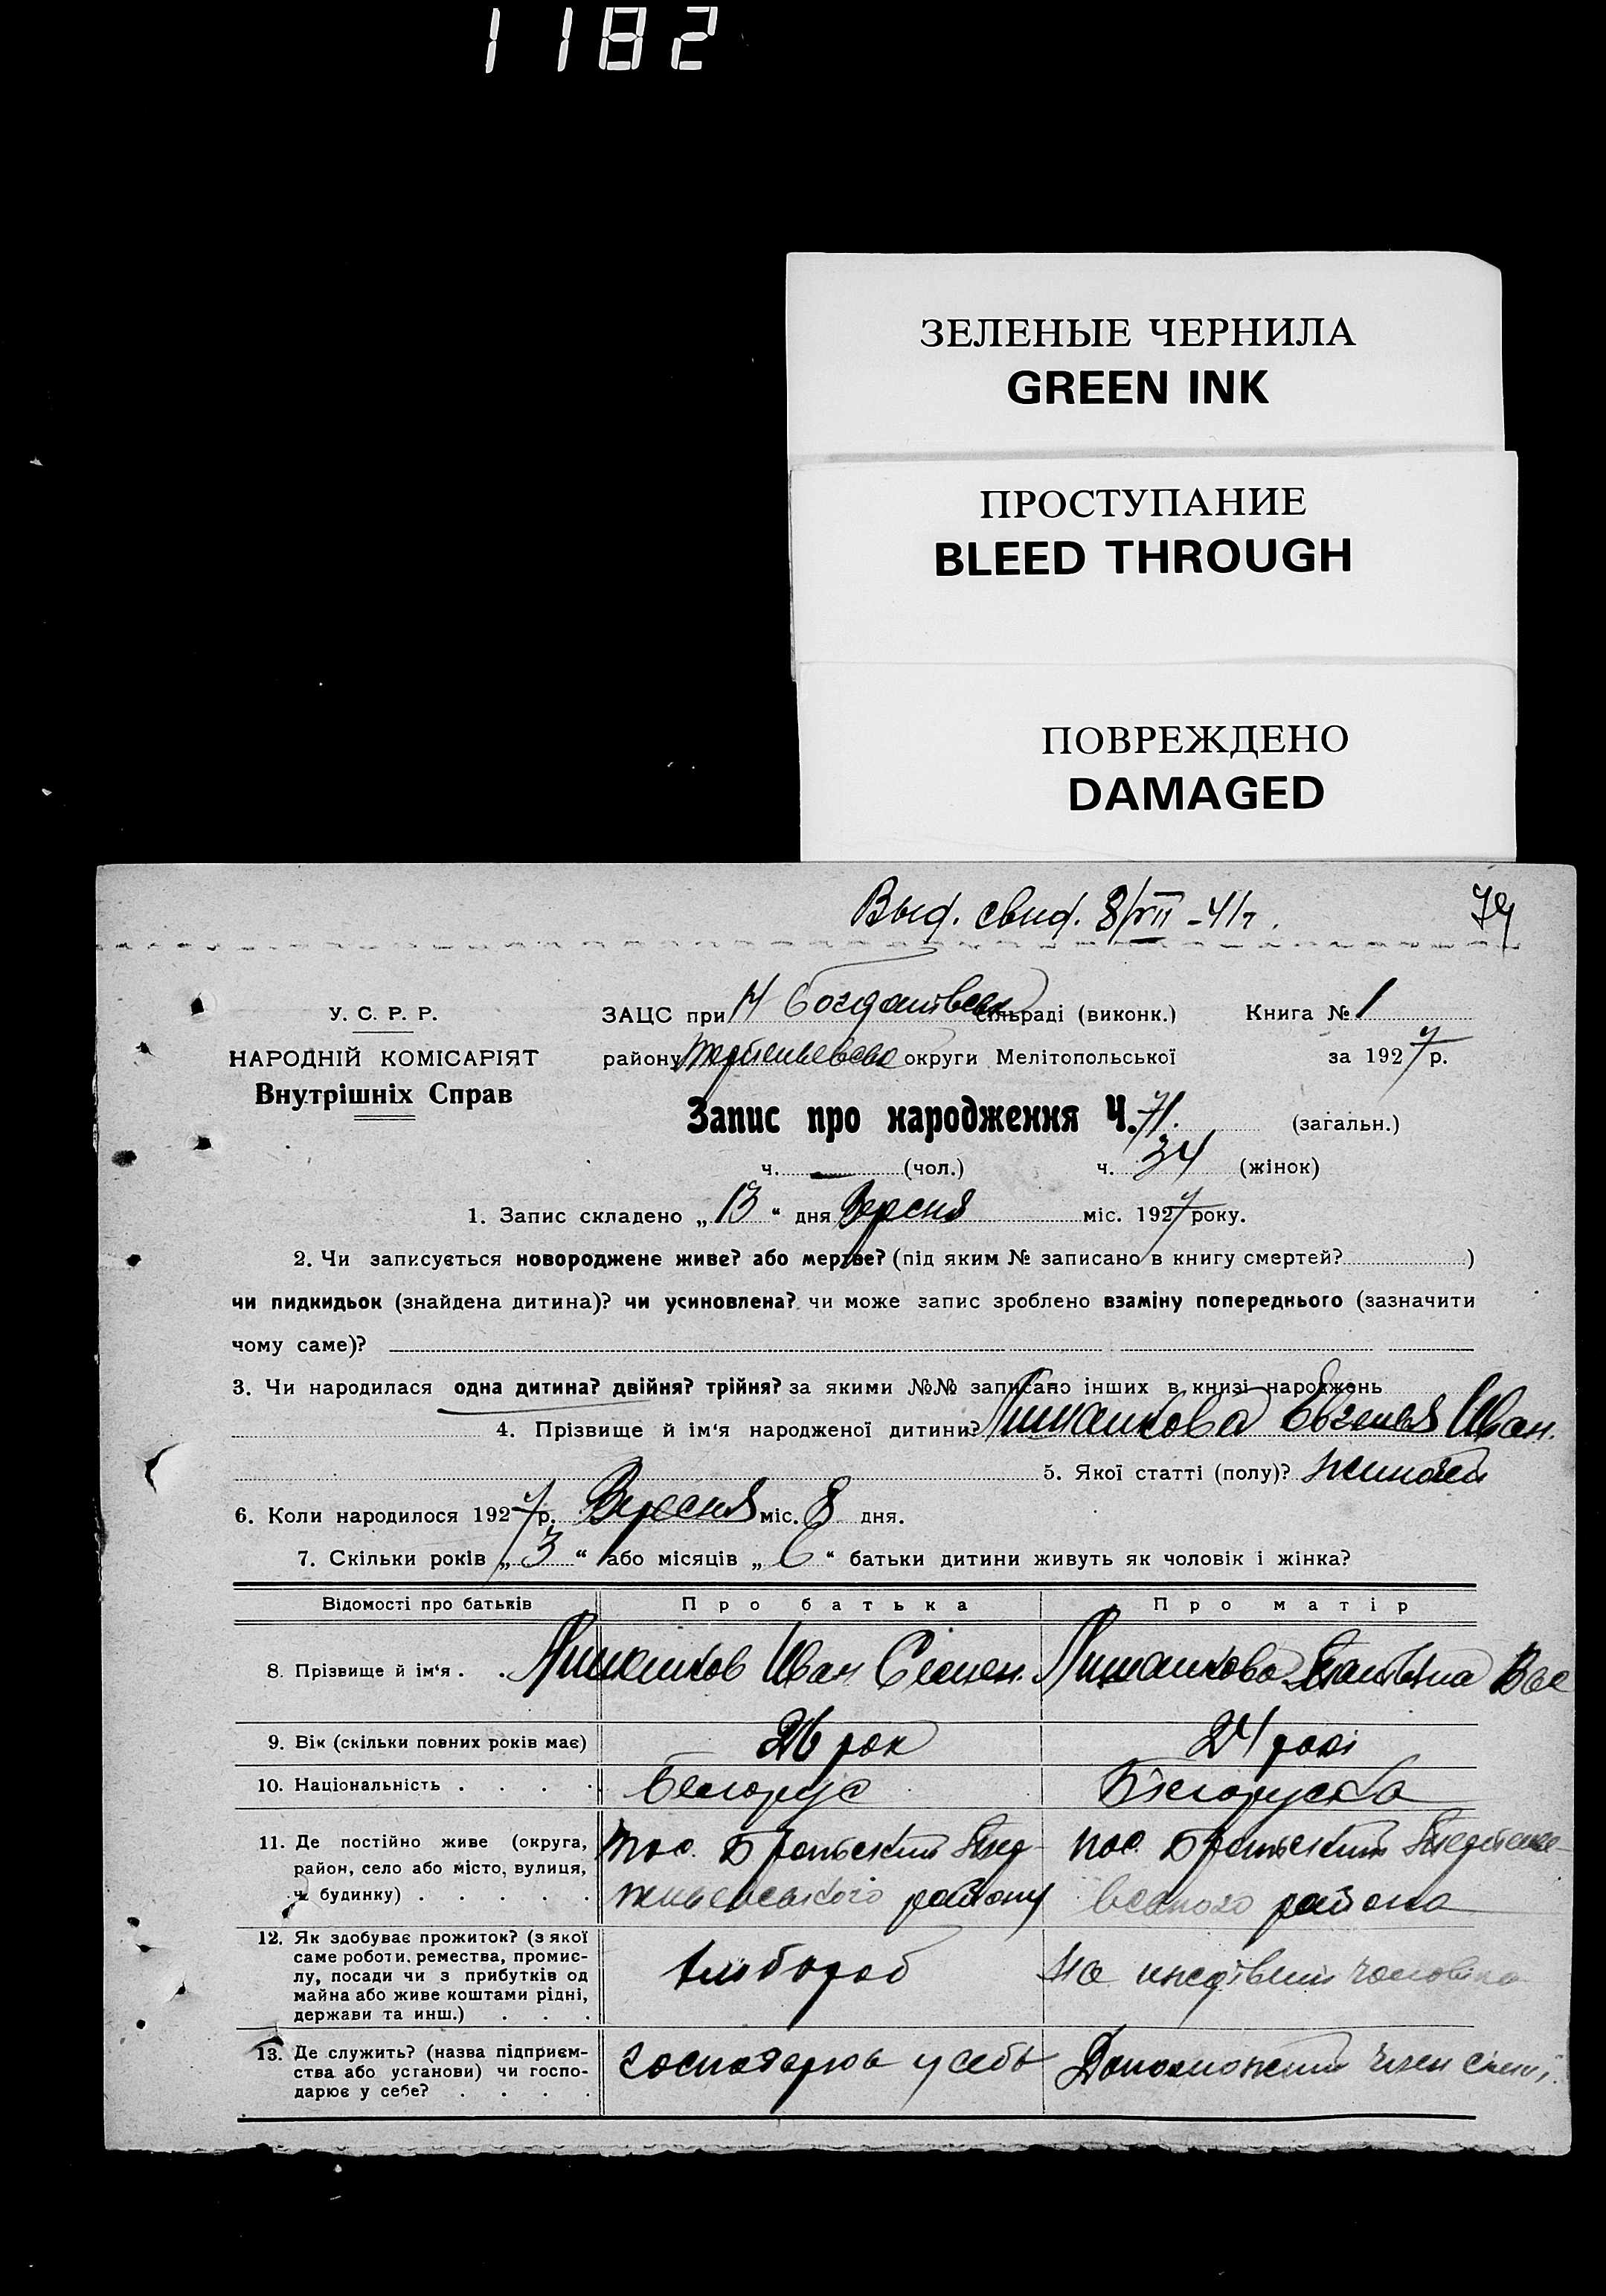 1182
ЗЕЛЕНЫЕ ЧЕРНИЛА
GREEN INK
ПРОСТУПАНИЕ
BLEED THROUGH
ПОВРЕЖДЕНО
DAMAGED
Выд. свид. 8/VII-41г.
У. С. Р. Р.
НАРОДНІЙ КОМІСАРІЯТ
Внутрішніх Справ
ЗАЦС при сільраді (виконк.) Книга № 1
району округи Мелітопольської за 1927 р.
Запис про народження Ч. 71. (загальн.)
ч. — (чол.) ч. 34 (жінок)
1. Запис складено „ 13 “ дня Вересня міс. 1927 року.
2. Чи записується новороджене живе? або мертве? (під яким № записано в книгу смертей? )
чи пидкидьок (знайдена дитина)? чи усиновлена? чи може запис зроблено взаміну попереднього (зазначити
чому саме)?
3. Чи народилася одна дитина? двійня? трійня? за якими №№ записано інших в книзі народжень
4. Прізвище й ім‘я народженої дитини? Евгения Иван.
5. Якої статті (полу)?
6. Коли народилося 1927 р. Вересня міс. 8 дня.
7. Скільки років „ 3 “ або місяців „ 6 “ батьки дитини живуть як чоловік і жінка?
Відомості про батьків Про батька Про матір
8. Прізвище й ім‘я . . Иван Семен.
9. Вік (скільки повних років має) 26 рок 24 рокі
10. Національність . . . . Белорус Білоруска
11. Де постійно живе (округа, район, село або місто, вулиця, ч. будинку) . . . . . пос. району пос. района
12. Як здобуває прожиток? (з якої саме роботи, ремества, промислу, посади чи з прибутків од майна або живе коштами рідні, держави та инш.) . . . Хлібороб На чоловіка
13. Де служить? (назва підприємства або установи) чи господарює у себе? . . . . господарює у себе член сімї.